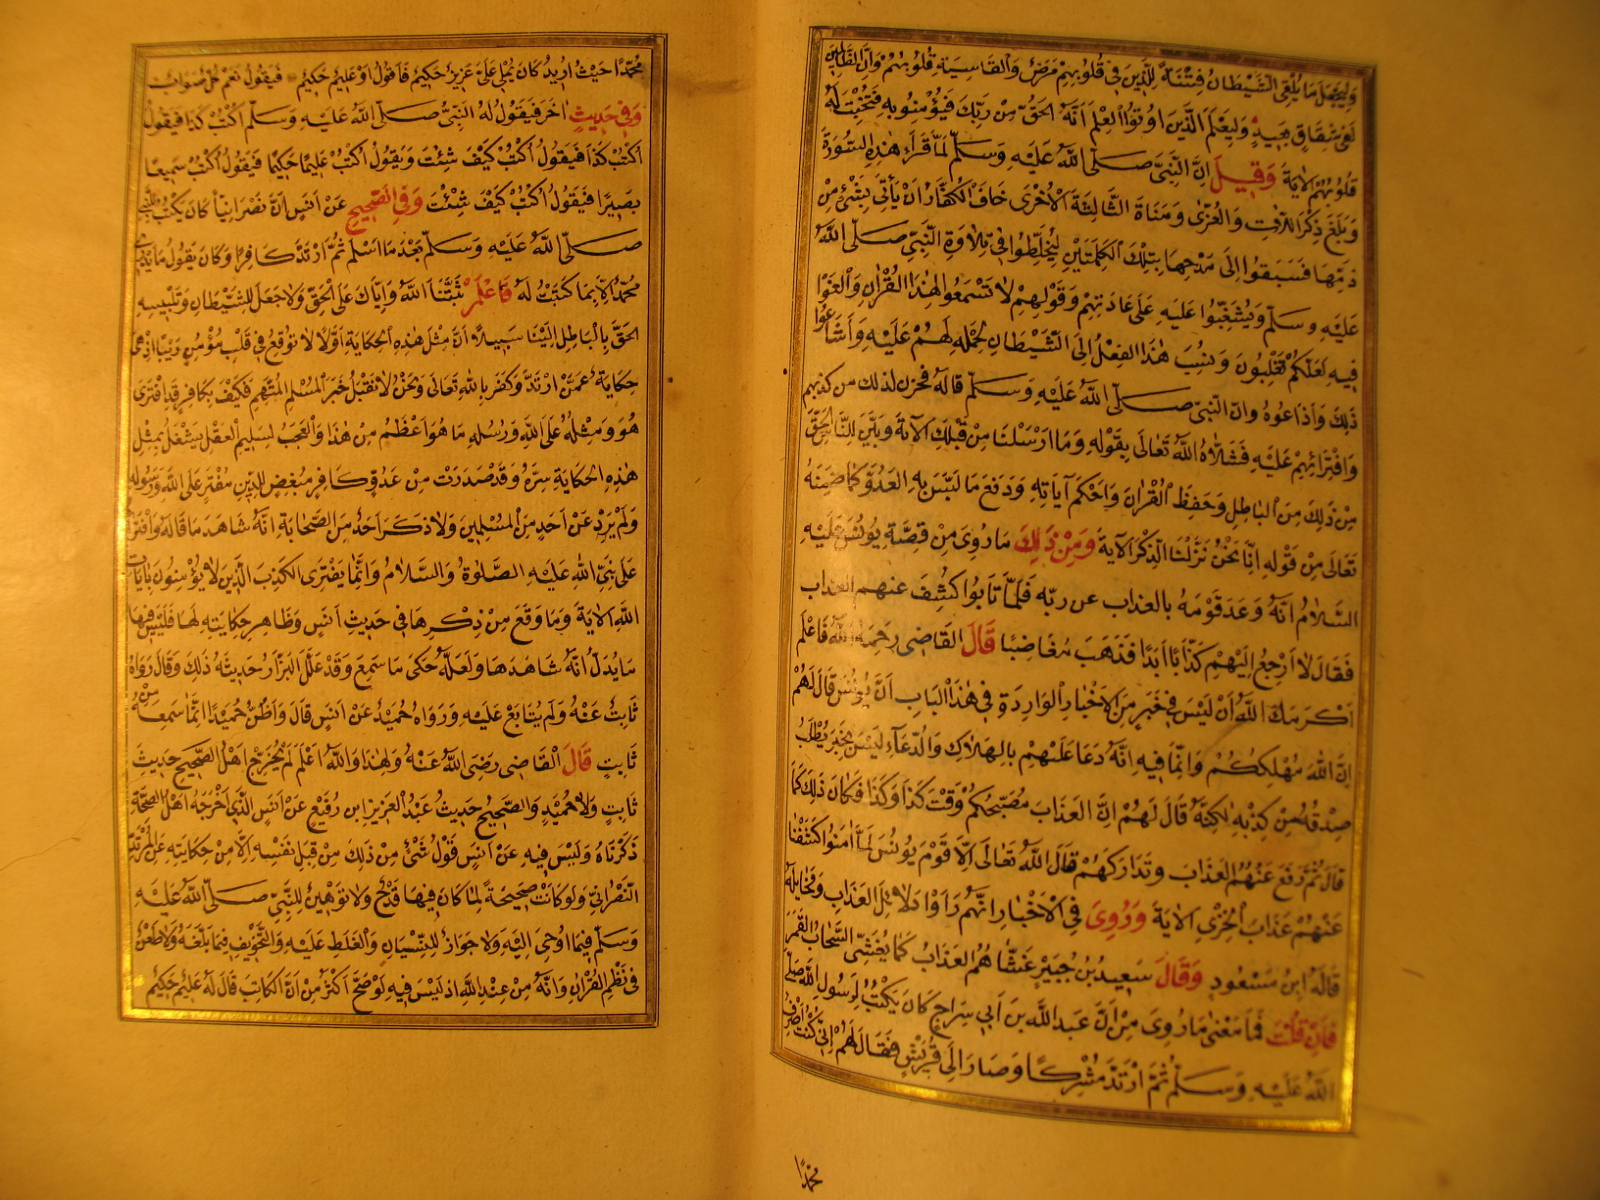 وليجعل ما يلقى الشيطان فتنة للذين فى قلوبهم مرض والقاسية قلوبهم وان الظالمين
لفى شقاق بعيد وليعلم الذين اوتوا العلم انه الحق من ربك فيؤمنوا به فتخبت له
قلوبهم الاية وقيل ان النبى صلى الله عليه وسلم لما قراء هذه السورة
وبلغ ذكر اللات والعزى ومناة الثالثة الاخرى خاف الكفار ان يأتى بشئ من
ذمها فسبقوا الى مدحها بتلك الكلمتين ليخلطوا فى تلاوة النبى صلى الله
عليه وسلم ويشغبوا عليه على عادتهم وقولهم لا تسمعوا لهذا القران والغوا
فيه لعلكم تغلبون ونسب هذا الفعل الى الشيطان لحمله لهم عليه واشاعوا
ذلك واذاعوه وان النبى صلى الله عليه وسلم قاله فحزن لذلك من كذبهم
وافترائهم عليه فسلاه الله تعالى بقوله وما ارسلنا من قبلك الآية وبين للناس الحق
من ذلك من الباطل وحفظ القران واحكم آياته ودفع ما لبس به العدو كما ضمنه
تعالى من قوله انا نحن نزلنا الذكر الآية ومن ذلك ما روى من قصة يونس عليه
السلام انه وعد قومه بالعذاب عن ربه فلما تابوا كشف عنهم العذاب
فقال لا ارجع اليهم كذابا ابدا فذهب مغاضبا قال القاضى رحمه الله فاعلم
اكرمك الله ان ليس فى خبر من الاخبار الواردة فى هذا الباب ان يونس قال لهم
ان الله مهلككم وانما فيه انه دعا عليهم بالهلاك والدعاء ليس بخبر يطلب
صدقه من كذبه لكنه قال لهم ان العذاب مصبحكم وقت كذا وكذا فكان ذلك كما
قال ثم رفع عنهم العذاب وتداركهم قال الله تعالى الا قوم يونس لما امنوا كشفنا
عنهم عذاب الخزى الاية وروى فى الاخبار انهم راوا دلائل العذاب ومخايله
قاله ابن مسعود وقال سعيد بن جبير غشاهم العذاب كما يغشى السحاب القمر
فان قلت فما معنى ما روى من ان عبد الله بن ابي سراح كان يكتب لرسول الله صلى
الله عليه وسلم ثم ارتد مشركا وصار الى قريش فقال لهم انى كنت اصرف
محمدا
محمدا حيث اريد كان يملى على عزيز حكيم فاقول او عليم حكيم فيقول نعم كل صواب
وفى حديث اخر فيقول له النبى صلى الله عليه وسلم اكتب كذا فيقول
اكتب كذا فيقول اكتب كيف شئت ويقول اكتب عليما حكيما فيقول اكتب سميعا
بصيرا فيقول اكتب كيف شئت وفى الصحيح عن انس ان نصرانيا كان يكتب للنبى
صلى الله عليه وسلم بعد ما اسلم ثم ارتد كافرا وكان يقول ما يدرى
محمد الا بما كتبت له فاعلم ثبتنا الله واياك على الحق ولا جعل للشيطان وتلبيسه
الحق بالباطل الينا سبيلا ان مثل هذه الحكاية اولا لا توقع فى قلب مؤمن ريبا اذ هى
حكاية عمن ارتد وكفر بالله تعالى ونحن لا نقبل خبر المسلم المتهم فكيف بكافر قد افترى
هو ومثله على الله ورسله ما هو اعظم من هذا والعجب لسليم العقل يشغل بمثل
هذه الحكاية سره وقد صدرت من عدو كافر مبغض للدين مفتر على الله ورسوله
ولم يرد عن احد من المسلمين ولا ذكر احد من الصحابة انه شاهد ما قاله وافتراه
على نبى الله عليه الصلوة والسلام وانما يفترى الكذب الذين لا يؤمنون بايات
الله الاية وما وقع من ذكرها فى حديث انس وظاهر حكايته لها فليس فيها
ما يدل انه شاهدها ولعله حكى ما سمع وقد علل البزار حديثه ذلك وقال رواه
ثابت عنه ولم يتابع عليه ورواه حميد عن انس قال واظن حميدا انما سمعه من
ثابت قال القاضى رضى الله عنه ولهذا والله اعلم لم يخرج اهل الصحيح حديث
ثابت ولا حميد والصحيح حديث عبد العزيز ابن رفيع عن انس الذى اخرجه اهل الصحة
ذكرناه وليس فيه عن انس قول شئ من ذلك من قبل نفسه الا من حكايته عن المرتد
النصرانى ولو كانت صحيحة لما كان فيها قدح ولا توهين للنبى صلى الله عليه
وسلم فيما اوحى اليه ولا جواز للنسيان والغلط عليه والتحريف فيما بلغه ولا طعن
فى نظم القران وانه من عند الله اذ ليس فيه لو صح اكثر من ان الكاتب قال له عليم حكيم